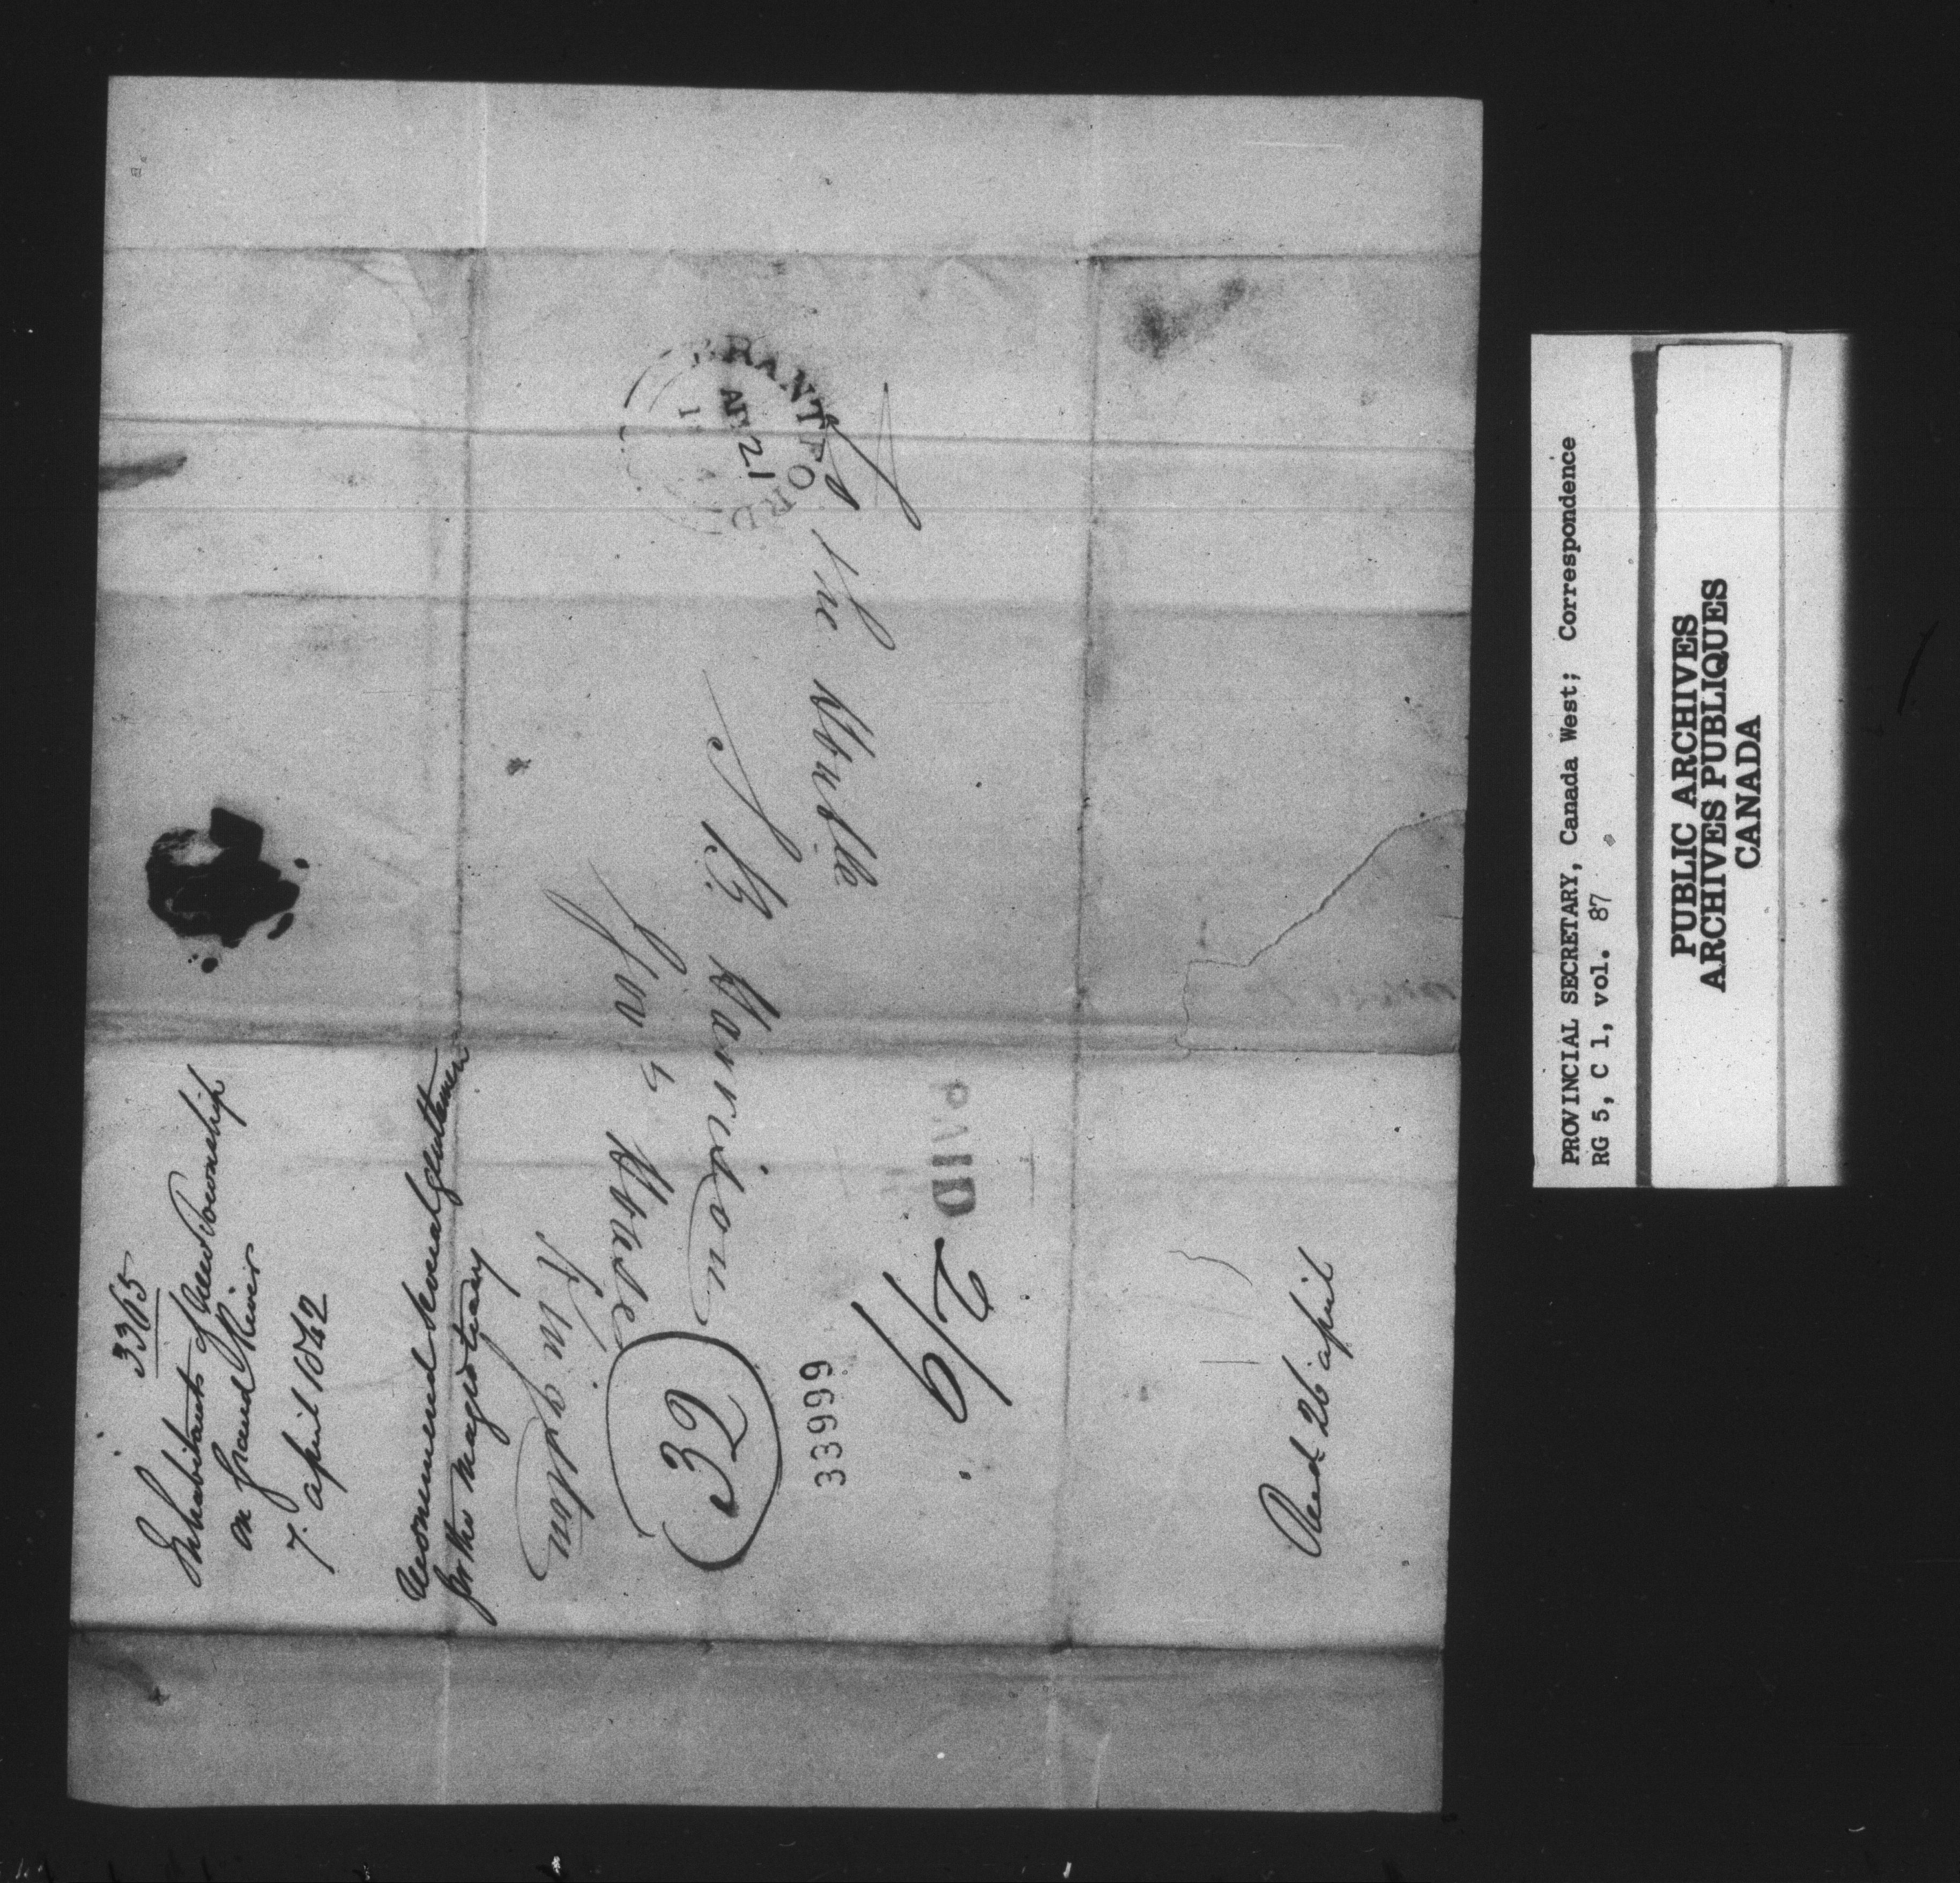 3365
Inhabitants of new Township
on Grand River
7. april 1842
Recommend several gentlemen
for the magistracy
BRANTFORD
AP 21
To the Honble
S B Harrison
Gov,t House
Kingston
63
33999
PAID 2/9
Recd 26 april
PROVINCIAL SECRETARY, Canada West; Correspondence
RG 5, C 1, vol. 87
PUBLIC ARCHIVES
ARCHIVES PUBLIQUES
CANADA